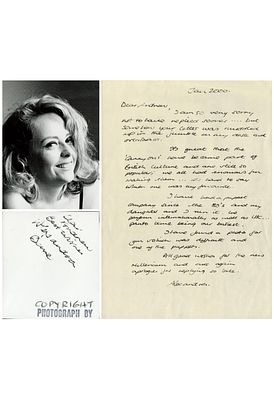 Jan, 2000.
Dear Andrew,
I am so very sorry
not to have replied sooner .... but
your letter was muddled
up in the jumble on my desk and
overseas!
It's great that the
'Carry Ons' have become part of
British Culture and are still so
popular; we all had enormous fun
making them ... it's hard to say
which one was my favourite.
I have had a puppet
company since the 80's and my
daughter and I run it. We
perform internationally as well as UK...
being our latest.
I have found a photo for
you
one of the puppets.
All good wishes for the new
Millennium and once again
apologies for replying so late.
To
Andrew
COPYRIGHT
PHOTOGRAPH BY